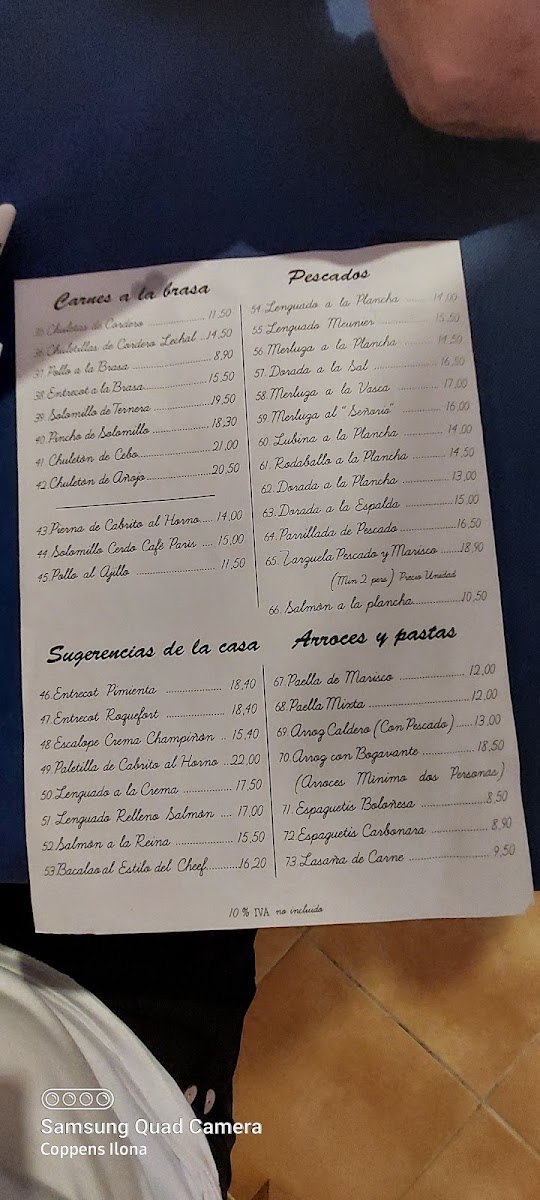 Carnes a la brasa
35. Chuletas de Cordero ........ 11,50
36. Chuletillas de Cordero Lechal ... 14,50
37. Pollo a la Brasa ........ 8,90
38. Entrecot a la Brasa ........ 15,50
39. Solomillo de Ternera ........ 19,50
40. Pincho de Solomillo ........ 18,30
41. Chuletón de Cebo ........ 21,00
42. Chuletón de Añojo ........ 20,50
43. Pierna de Cabrito al Horno ..... 14,00
44. Solomillo Cerdo Café Paris .... 15,00
45. Pollo al Ajillo ........ 11,50
Pescados
54. Lenguado a la Plancha ........ 14,00
55. Lenguado Meunier ........ 15,50
56. Merluza a la Plancha ........ 14,50
57. Dorada a la Sal ........ 16,50
58. Merluza a la Vasca ........ 17,00
59. Merluza al "Señorio" ........ 16,00
60. Lubina a la Plancha ........ 14,00
61. Rodaballo a la Plancha ........ 14,50
62. Dorada a la Plancha ........ 13,00
63. Dorada a la Espalda ........ 15,00
64. Parrillada de Pescado ........ 16,50
65. Zarzuela Pescado y Marisco ...... 18,90
(Min 2 pers) Precio Unidad
66. Salmón a la plancha ........ 10,50
Sugerencias de la casa
46. Entrecot Pimienta ........ 18,40
47. Entrecot Roquefort ........ 18,40
48. Escalope Crema Champiñon .. 15,40
49. Paletilla de Cabrito al Horno .. 22,00
50. Lenguado a la Crema ........ 17,50
51. Lenguado Relleno Salmón .... 17,00
52. Salmón a la Reina ........ 15,50
53. Bacalao al Estilo del Cheef ........ 16,20
Arroces y pastas
67. Paella de Marisco ........ 12,00
68. Paella Mixta ........ 12,00
69. Arroz Caldero (Con Pescado) ..... 13,00
70. Arroz con Bogavante ........ 18,50
(Arroces Minimo dos Personas)
71. Espaguetis Boloñesa ........ 8,50
72. Espaguetis Carbonara ........ 8,90
73. Lasaña de Carne ........ 9,50
10 % IVA no incluido
Samsung Quad Camera
Coppens Ilona